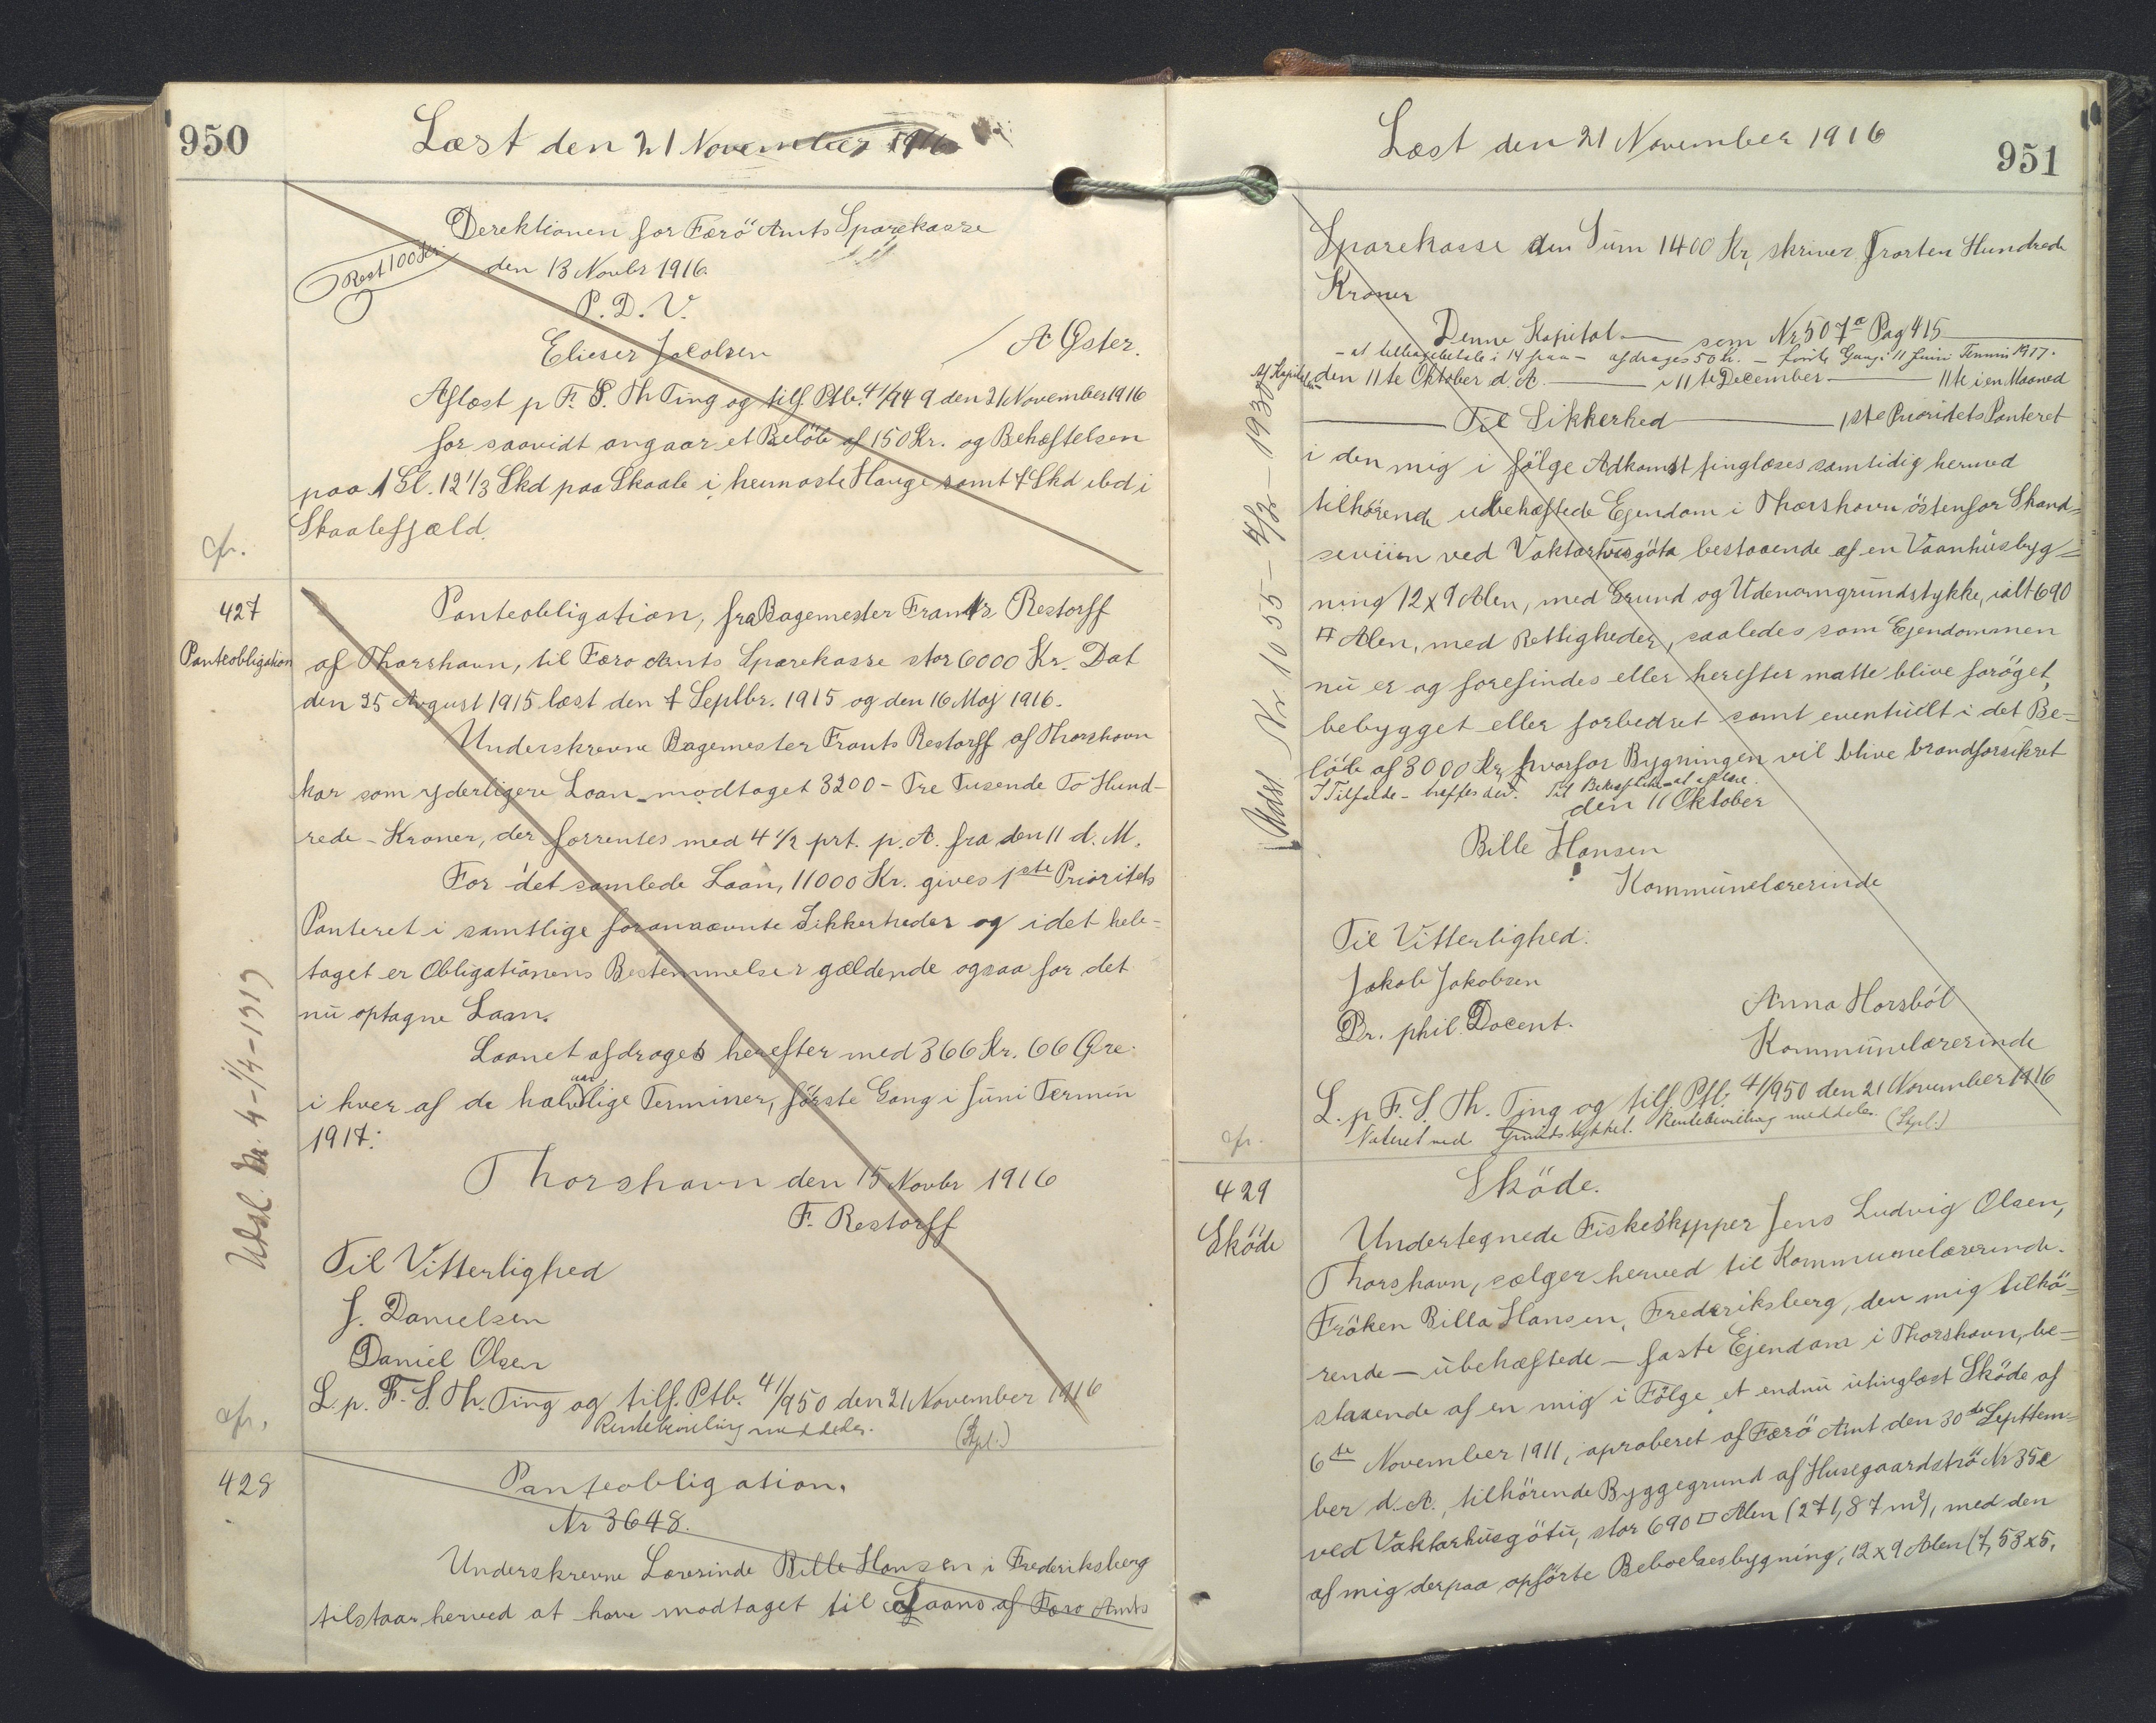 950
Læst den 21 November 1916
Derektionen for Færö Amts Sparekasse
Rest 100 Kr.
den 13 Novbr 1916.
P. D. V.
Elieser Jacobsen / A Øster.
Aflæst p F. S. Th Ting og tilf. Ptb. 41/949 den 21 November 1916
for saavidt angaar et Beløb af 150 Kr. og Behæftelsen
paa 1 Gl. 12 1/3 Skd paa Skaale i heimaste Hauge samt 7 Skd ibd i
Skaalefjæld.
cfr.
427
Panteobligation
Panteobligation, fra Bagemester Frants Restorff
af Thorshavn, til Færo Amts Sparekasse stor 6000 Kr. Dat
den 25 August 1915 læst den 7 Septbr. 1915 og den 16 Maj 1916.
Underskrevne Bagemester Frants Restorff af Thorshavn
har som yderligere Laan modtaget 3200 - Tre Tusende To Hund-
rede - Kroner, der forrentes med 4 1/2 prt. p. A. fra den 11 d. M.
For det samlede Laan, 11000 Kr. gives 1ste Prioritets
Panteret i samtlige forannævnte Sikkerheder og i det hele-
taget er Obligationens Bestemmelser gældende ogsaa for det
nu optagne Laan.
Laanet afdrages herefter med 366 Kr. 66 Øre
i hver af de halvaarlige Terminer, første Gang i Juni Termin
1917.
Thorshavn den 15 Novbr 1916
F. Restorff
Til Vitterlighed
J. Danielsen
Daniel Olsen
L. p. F. S. Th. Ting og tilf. Ptb. 41/950 den 21 November 1916
Rentebevilling meddeles. (Stpl.)
Udsl. Nr. 4-1/4-1919
cfr.
428
Panteobligation.
Nr 3648.
Underskrevne Lærerinde Bille Hansen i Frederiksberg
tilstaar herved at have modtaget til Laans af Færo Amts
951
Læst den 21 November 1916
Sparekasse den Sum 1400 Kr, skriver Fjorten Hundrede
Kroner
Denne Kapital — som Nr 507a Pag 415
- at tilbagebetale i 14 paa - afdrages 50 Kr. - første Gang i 11 Juni Termin 1917.
Af Kapitalen den 11te Oktober d. A. — i 11te December — 11te i en Maaned
Til Sikkerhed — 1ste Prioritets Panteret
i den mig i følge Adkomst tinglæses samtidig hermed
tilhørende ubehæftede Ejendom i Thorshavn östenfor Skand-
seviien ved Vaktarhusgöta bestaaende af en Vaanhusbyg-
ning 12 x 9 Alen, med Grund og Udenomgrundstykke, ialt 690
□ Alen, med Rettigheder, saaledes som Ejendommen
nu er og forefindes eller herefter matte blive forøget,
bebygget eller forbedret samt eventuelt i det Be-
løb af 3000 Kr, hvorfor Bygningen vil blive brandforsikret
I Tilfælde - hæftes der. Til Bekræftelse at aflæse.
den 11 Oktober
Bille Hansen
Kommunelærerinde
Til Vitterlighed:
Jakob Jakobsen
Dr. phil. Docent.
Anna Horsböl
Kommunelærerinde
L. p F. S. Th. Ting og tilf. Ptb. 41/950 den 21 November 1916
Noteret ved Grundstykket. Rentebevilling meddeles. (Stpl.)
Udsl. Nr 1055-4/2-1930
cfr.
429
Sköde
Sköde.
Undertegnede Fiskeskipper Jens Ludvig Olsen,
Thorshavn, sælger herved til Kommunelærerinde
Fröken Billa Hansen, Frederiksberg, den mig tilhö-
rende — ubehæftede — faste Ejendom i Thorshavn, be-
staaende af en mig i Fölge et endnu utinglæst Sköde af
6te November 1911, aproberet af Færö Amt den 30de Septtem-
ber d. A., tilhörende Byggegrund af Husegaardströ Nr 35e
ved Vaktarhusgötu, stor 690 □ Alen (271,87 m2), med den
af mig derpaa opförte Beboelsesbygning, 12 x 9 Alen (7,53 x 5,